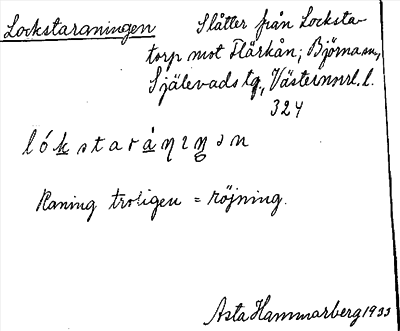 Lockstaraningen Slåtter från Locksta-
torp mot Flärkån; Björnam,
Själevads tg, Västernorrl. l.
324
lókstaràniŋən
Raning troligen = röjning.
Asta Hammarberg 1933